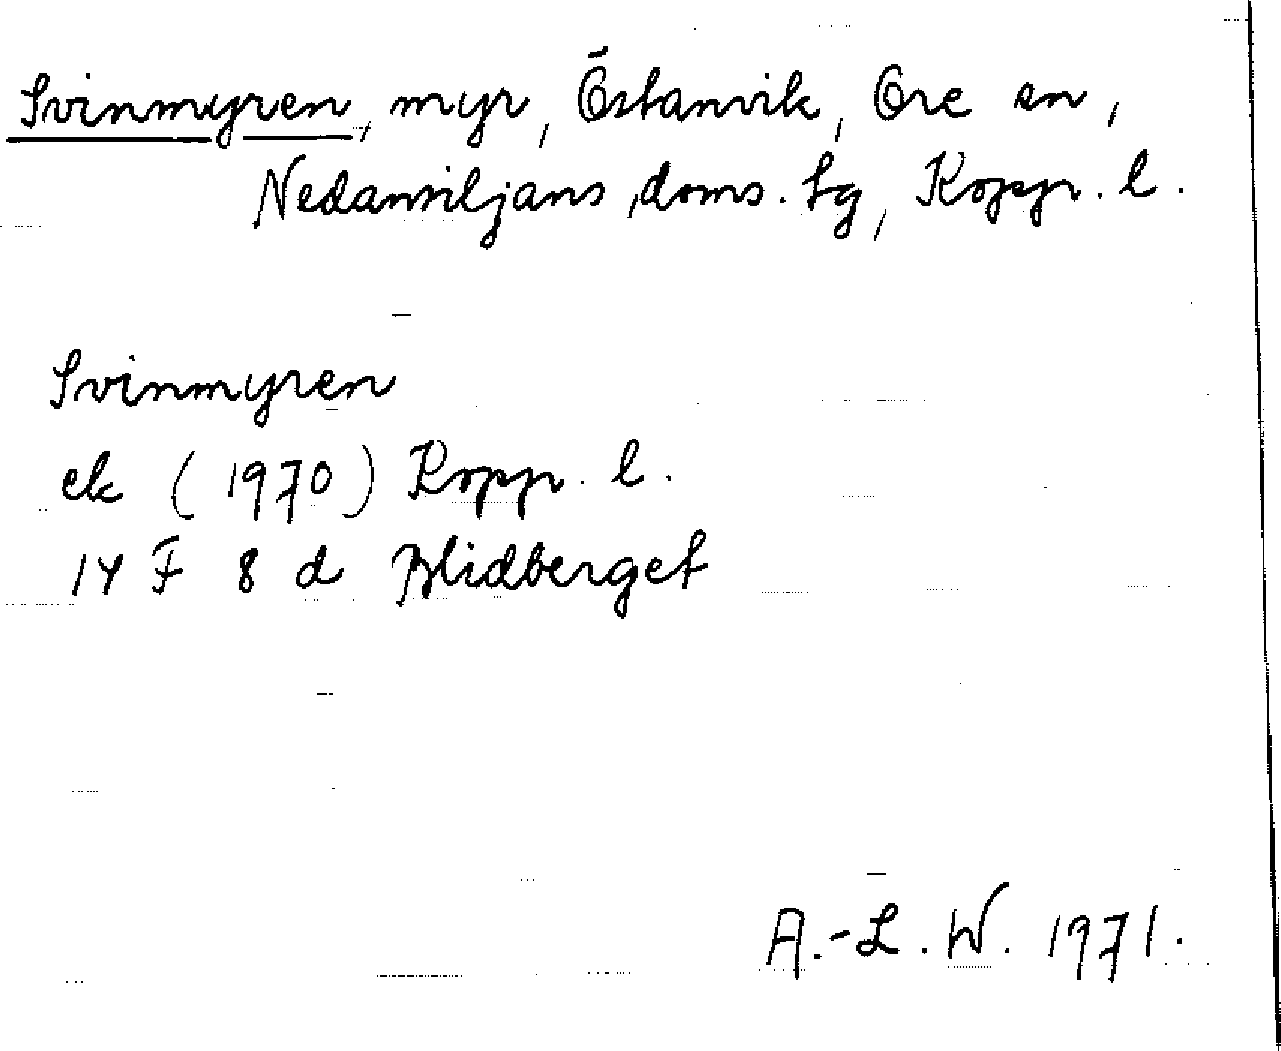 Svinmyren, myr, Östanvik, Ore sn,
Nedansiljans doms. tg, Kopp. l.
Svinmyren
ek (1970) Kopp. l.
14 F 8 d Blidberget
A.-L. W. 1971.